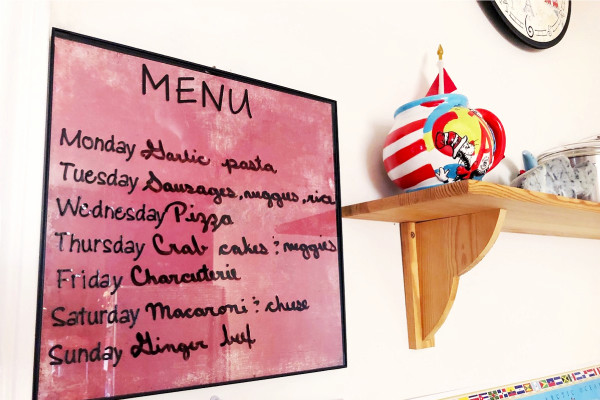 MENU
Monday Garlic pasta
Tuesday Sausages, nuggies, rice
Wednesday Pizza
Thursday Crab cakes & nuggies
Friday Charcuterie
Saturday Macaroni & cheese
Sunday Ginger beef
ARCTIC OCEAN